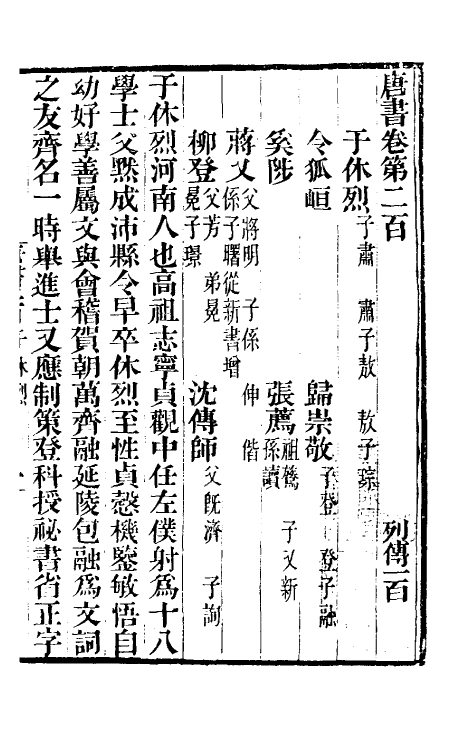 唐書卷第二百 列傳一百
于休烈 子肅 肅子敖 敖子琮
令狐峘 歸崇敬 子登 登子融
奚陟 張薦 祖鷟 子又新 孫讀
蔣乂 父將明 子係 伸 偕 係子曙從新書增
柳登 父芳 弟冕 冕子璟 沈傳師 父旣濟 子詢
于休烈河南人也高祖志寧貞觀中任左僕射爲十八
學士父默成沛縣令早卒休烈至性貞慤機鑒敏悟自
幼好學善屬文與會稽賀朝萬齊融延陵包融爲文詞
之友齊名一時舉進士又應制策登科授祕書省正字